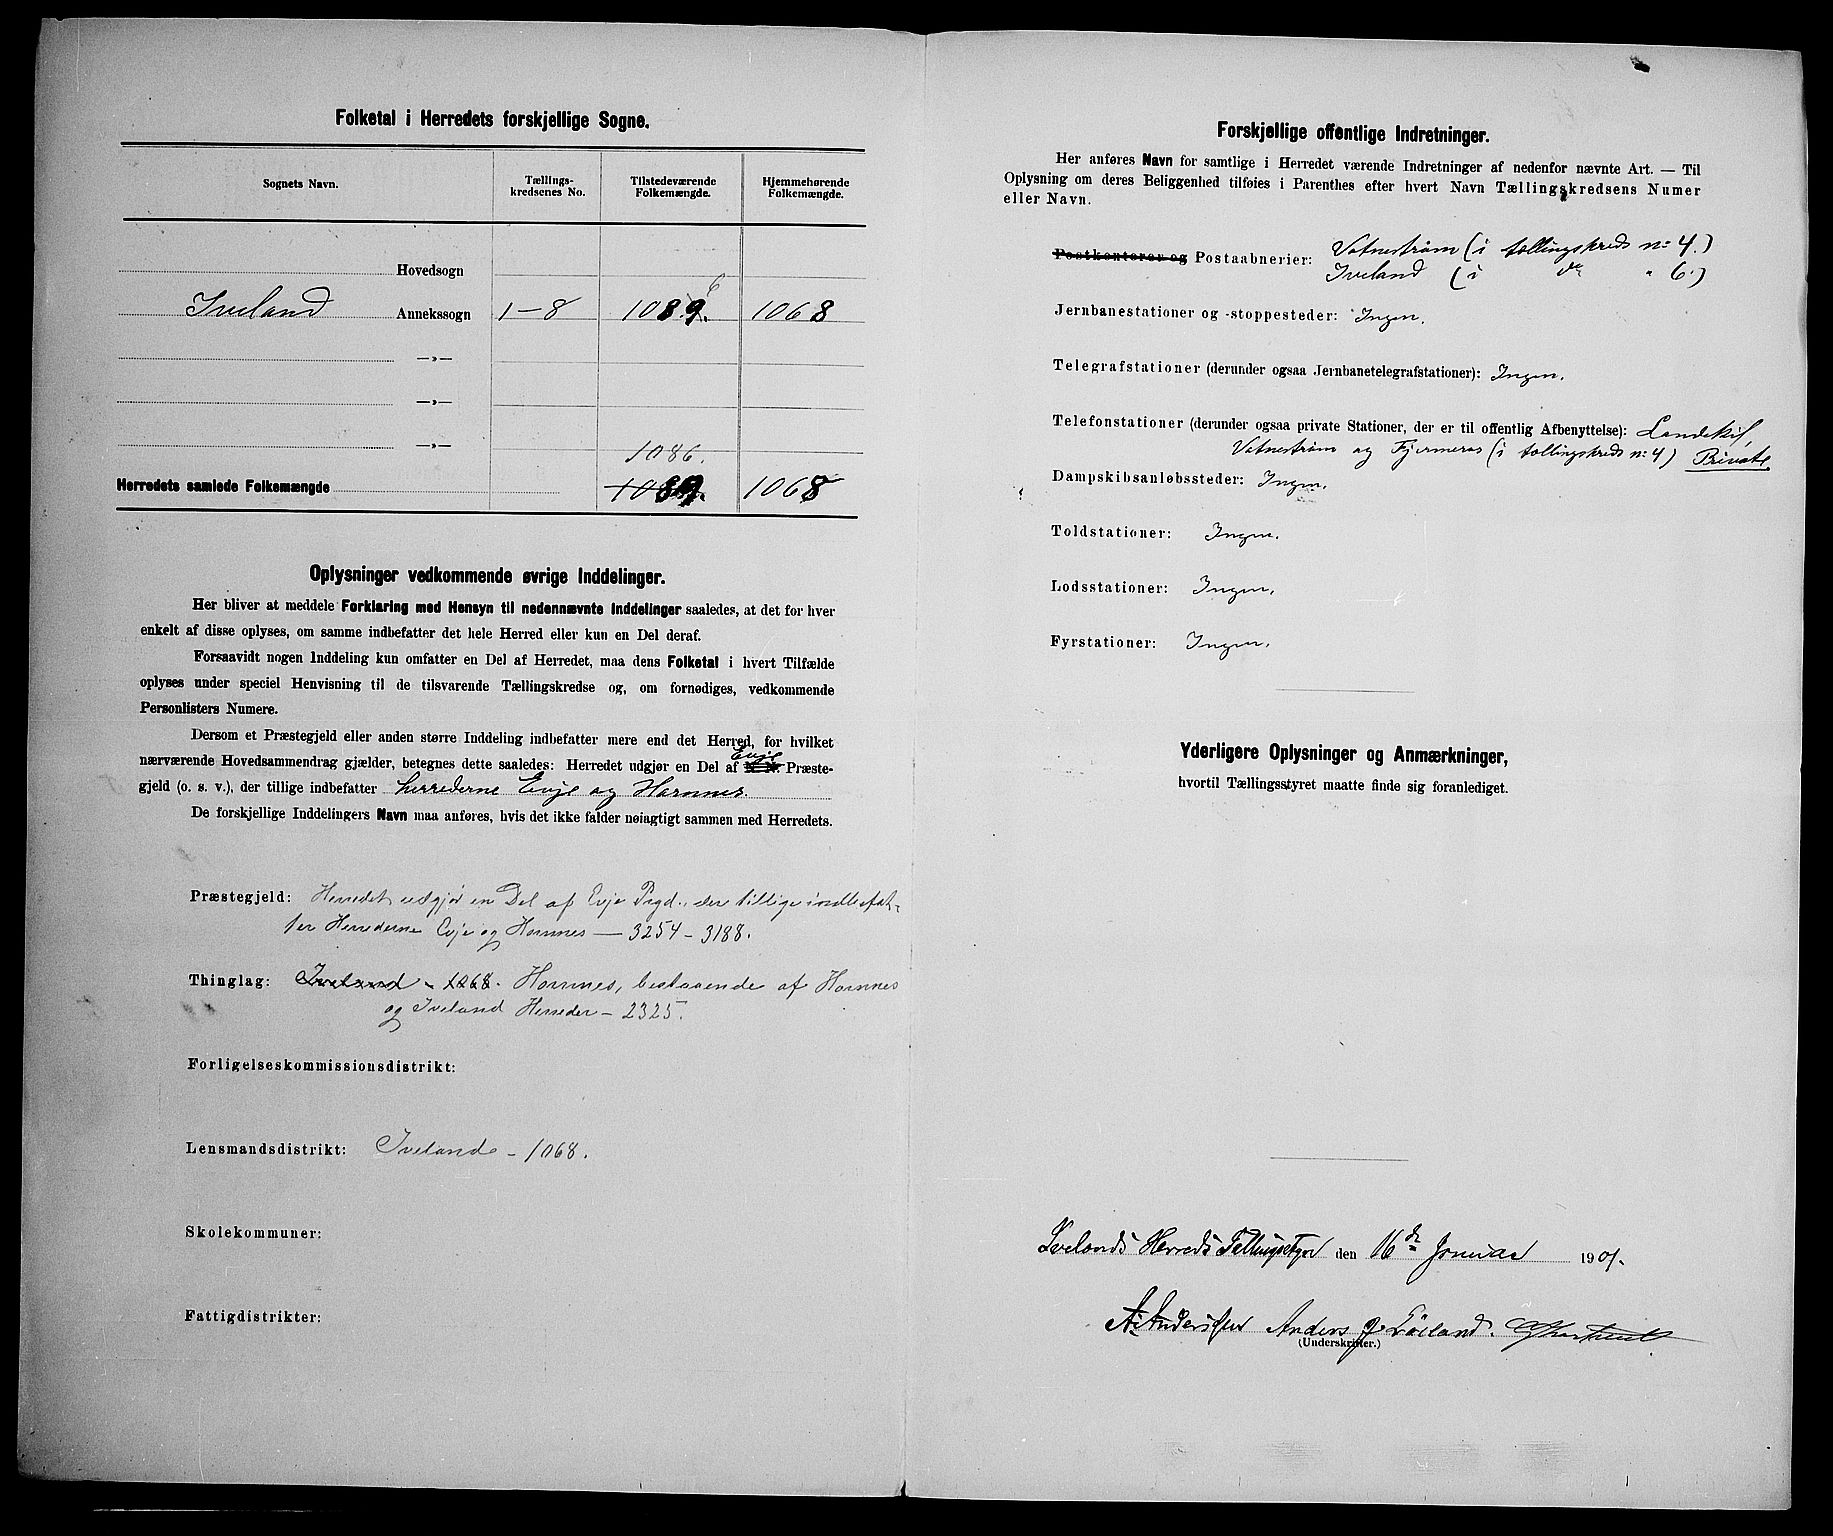 Folketal i Herredets forskjellige Sogne.
Sognets Navn. Tællings-kredsenes No. Tilstedeværende Folkemængde. Hjemmehørende Folkemængde.
Hovedsogn
6
Iveland Annekssogn 1-8 1089. 1068
—»—
—»—
—»—
1086.
Herredets samlede Folkemængde 1089. 1068
Oplysninger vedkommende øvrige Inddelinger.
Her bliver at meddele Forklaring med Hensyn til nedennævnte Inddelinger saaledes, at det for hver
enkelt af disse oplyses, om samme indbefatter det hele Herred eller kun en Del deraf.
Forsaavidt nogen Inddeling kun omfatter en Del af Herredet, maa dens Folketal i hvert Tilfælde
oplyses under speciel Henvisning til de tilsvarende Tællingskredse og, om fornødiges, vedkommende
Personlisters Numere.
Dersom et Præstegjeld eller anden større Inddeling indbefatter mere end det Herred, for hvilket
Evje
nærværende Hovedsammendrag gjælder, betegnes dette saaledes: Herredet udgjør en Del af N. N. Præste-
gjeld (o. s. v.), der tillige indbefatter herrederne Evje og Hornnes.
De forskjellige Inddelingers Navn maa anføres, hvis det ikke falder nøiagtigt sammen med Herredets.
Præstegjeld: Herredet udgjør en Del af Evje Prgd., der tillige indbefat-
ter Herrederne Evje og Hornnes — 3254 - 3188.
Thinglag: Iveland - 1068. Hornnes, bestaaende af Hornnes
og Iveland Herreder - 2325.
Forligelseskommissionsdistrikt:
Lensmandsdistrikt: Iveland - 1068.
Skolekommuner:
Fattigdistrikter:
Forskjellige offentlige Indretninger.
Her anføres Navn for samtlige i Herredet værende Indretninger af nedenfor nævnte Art. — Til
Oplysning om deres Beliggenhed tilføies i Parenthes efter hvert Navn Tællingskredsens Numer
eller Navn.
Postkontorer og Postaabnerier: Vatnestrøm (i tællingskreds nº 4.)
Iveland (i do " 6.)
Jernbanestationer og -stoppesteder: Ingen.
Telegrafstationer (derunder ogsaa Jernbanetelegrafstationer): Ingen.
Telefonstationer (derunder ogsaa private Stationer, der er til offentlig Afbenyttelse): Landeskil,
Vatnestrøm og Fjermeros (i tællingskreds nº 4) Private
Dampskibsanløbssteder: Ingen.
Toldstationer: Ingen.
Lodsstationer: Ingen.
Fyrstationer: Ingen.
Yderligere Oplysninger og Anmærkninger,
hvortil Tællingsstyret maatte finde sig foranlediget.
Ivelands Herreds Tællingsstyre den 16de Januar 1901.
A. Anderssen Anders J. Løiland.
(Underskrifter.)